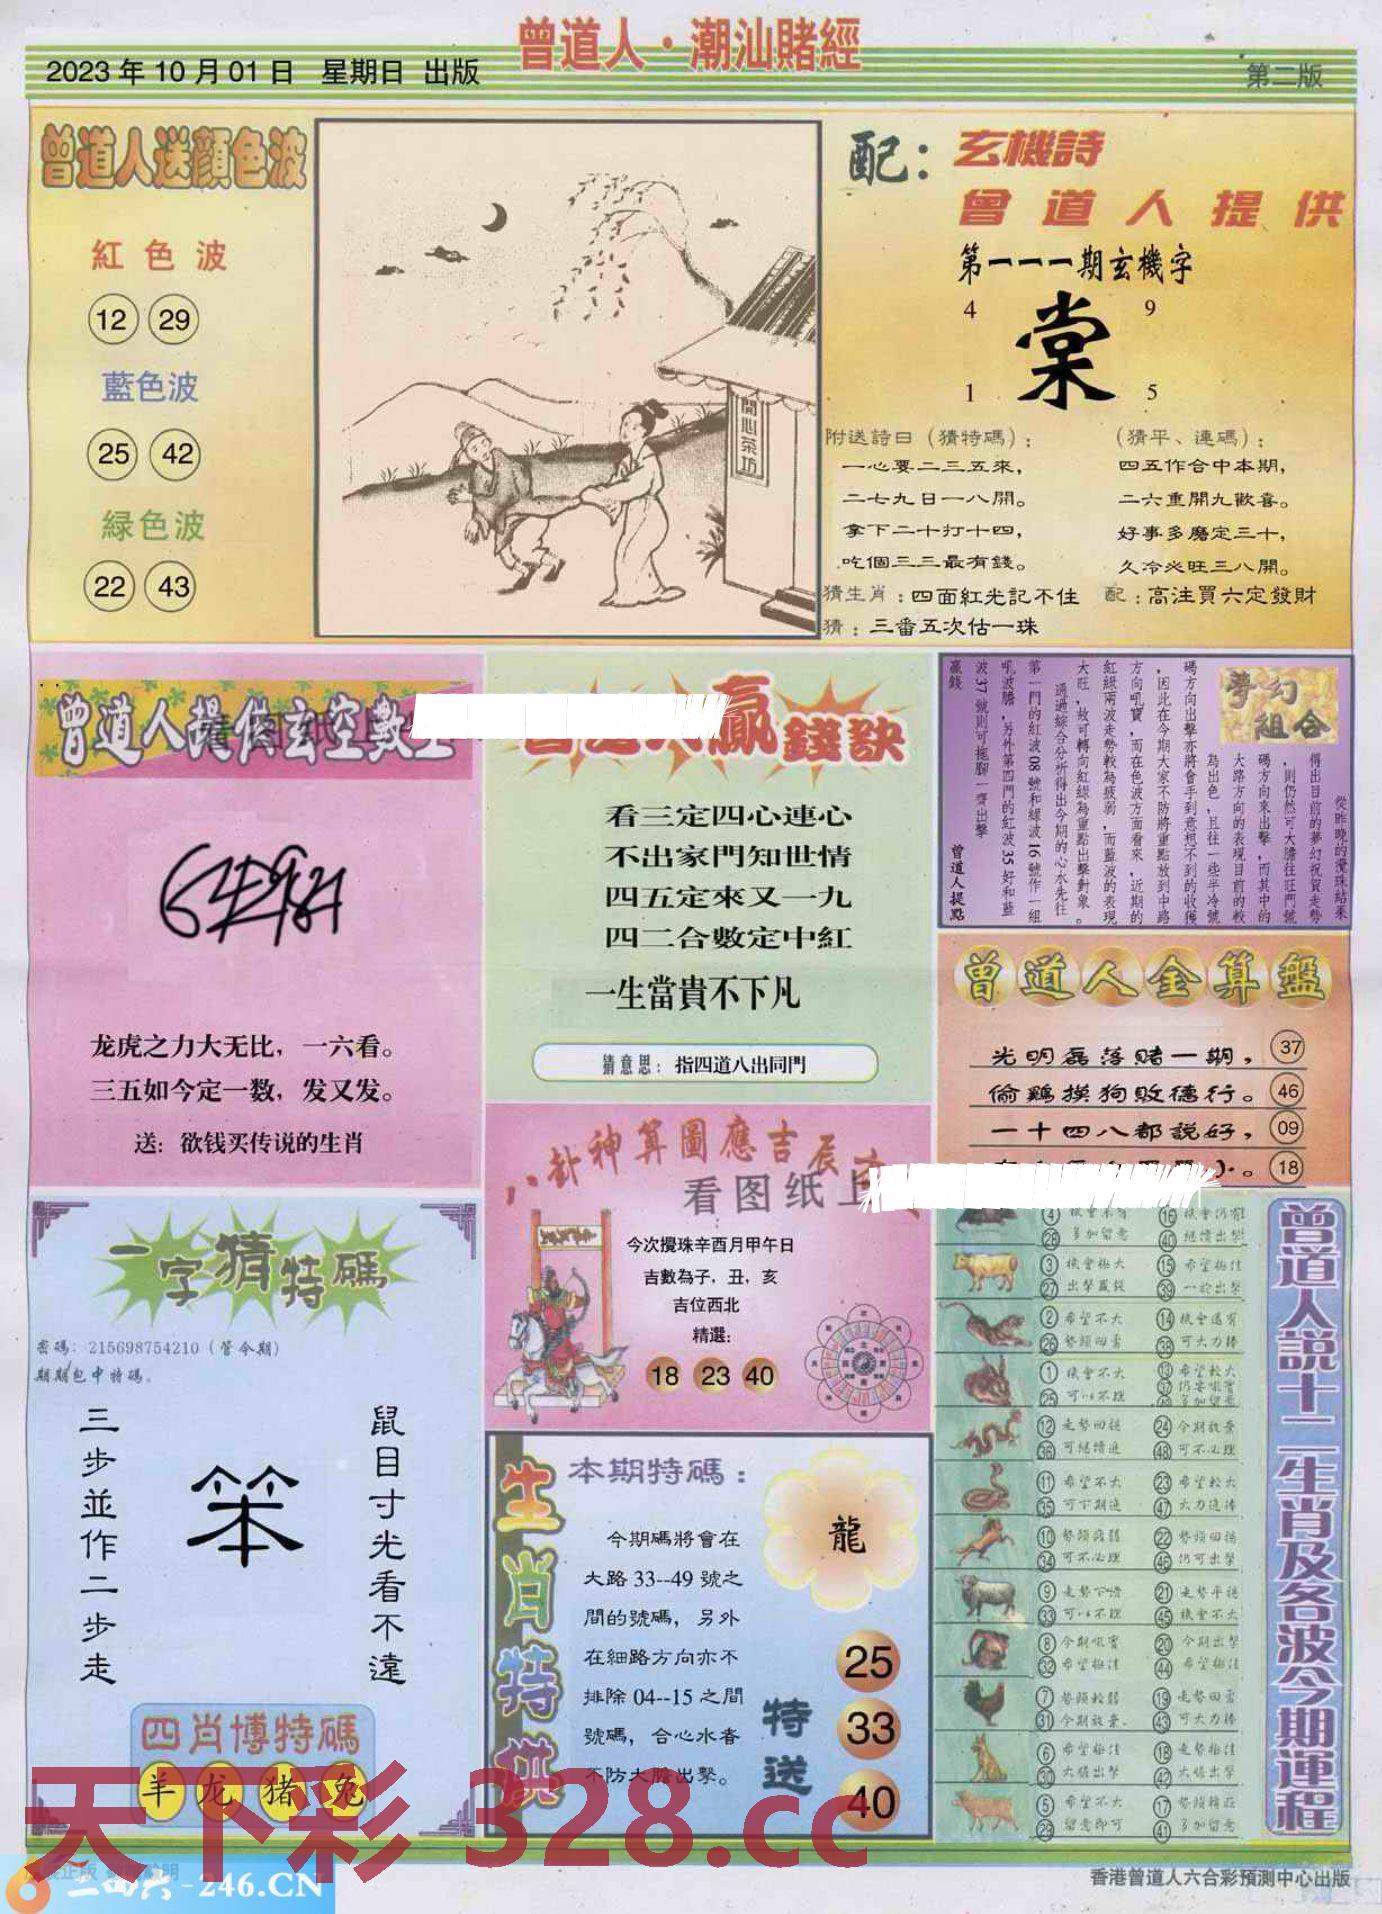 曾道人·潮汕賭經
2023年10月01日 星期日 出版
第二版
曾道人送顔色波
紅色波
12 29
藍色波
25 42
緑色波
22 43
開心茶坊
配：玄機詩
曾道人提供
第一一一期玄機字
4 9
棠
1 5
附送詩曰（猜特碼）：
一心要二三五來，
二七九日一八開。
拿下二十打十四，
吃個三三最有錢。
（猜平、連碼）：
四五作合中本期，
二六重開九歡喜。
好事多磨定三十，
久冷必旺三八開。
猜生肖：四面紅光記不住 配：高注買六定發財
猜：三番五次估一珠
曾道人提供玄空數
龙虎之力大无比，一六看。
三五如今定一数，发又发。
送：欲钱买传说的生肖
贏錢訣
看三定四心連心
不出家門知世情
四五定來又一九
四二合數定中紅
一生當貴不下凡
猜意思：指四道八出同門
夢幻組合
從昨晚的攪珠結果
得出目前的夢幻祝賀走勢
，則仍然可大膽往旺門號
碼方向來出擊，而其中的
大路方向的表現目前的較
為出色，且往一些半冷號
碼方向出擊亦將會手到意想不到的收獲
，因此在今期大家不防將重點放到中路
方向吼寶，而在色波方面看來，近期的
紅綠兩波走勢較為疲弱，而藍波的表現
大旺，故可轉向紅綠為重點出擊對象。
通過綜合分析得出今期的心水先往
第一門的紅波08號和綠波16號作一組
吼波膽，另外第四門的紅波35好和藍
波37號則可拖腳一齊出擊
贏錢
曾道人提點
曾道人金算盤
光明磊落賭一期， 37
偷鷄摸狗敗德行。 46
一十四八都説好， 09
18
八卦神算圖應吉辰
看图纸上
今次攪珠辛酉月甲午日
吉數為子，丑，亥
吉位西北
精選：
18 23 40
一字猜特碼
密碼：215698754210（管今期）
期期包中特碼。
鼠目寸光看不遠
笨
三步並作二步走
四肖博特碼
羊 龙 猪 兔
生肖特供
本期特碼：
龍
今期碼將會在
大路33--49號之
間的號碼，另外
在細路方向亦不
排除04--15之間
號碼，合心水者
不防大膽出擊。
特送
25
33
40
曾道人説十二生肖及各波今期運程
4 16 機會仍有
28 多加留意 40 繼續出擊
3 機會極大 15 希望極佳
27 出擊贏錢 39 一於出擊
2 希望不大 14 機會還有
26 勢頭回落 38 可大力捧
1 機會不大 希望較大
25 可以不理
12 走勢回穩 24 今期放棄
36 可繼續追 48 可不必理
11 希望不大 23 希望較大
35 可下期追 47 大力追捧
10 勢頭疲弱 22 勢頭回穩
34 可不必理 46 仍可出擊
9 走勢下滑 21 走勢平穩
33 可以不理 45 機會不大
8 今期吼實 20 今期出擊
32 希望極佳 44 希望極佳
7 勢頭較弱 19 走勢回落
31 今期放棄. 43 可大力捧
6 希望極佳 18 走勢極佳
30 大膽出擊 42 大膽出擊
5 希望不大 17
29 留意即可 41 多加留意
天下彩 328.cc
二四六-246.CN
香港曾道人六合彩預測中心出版